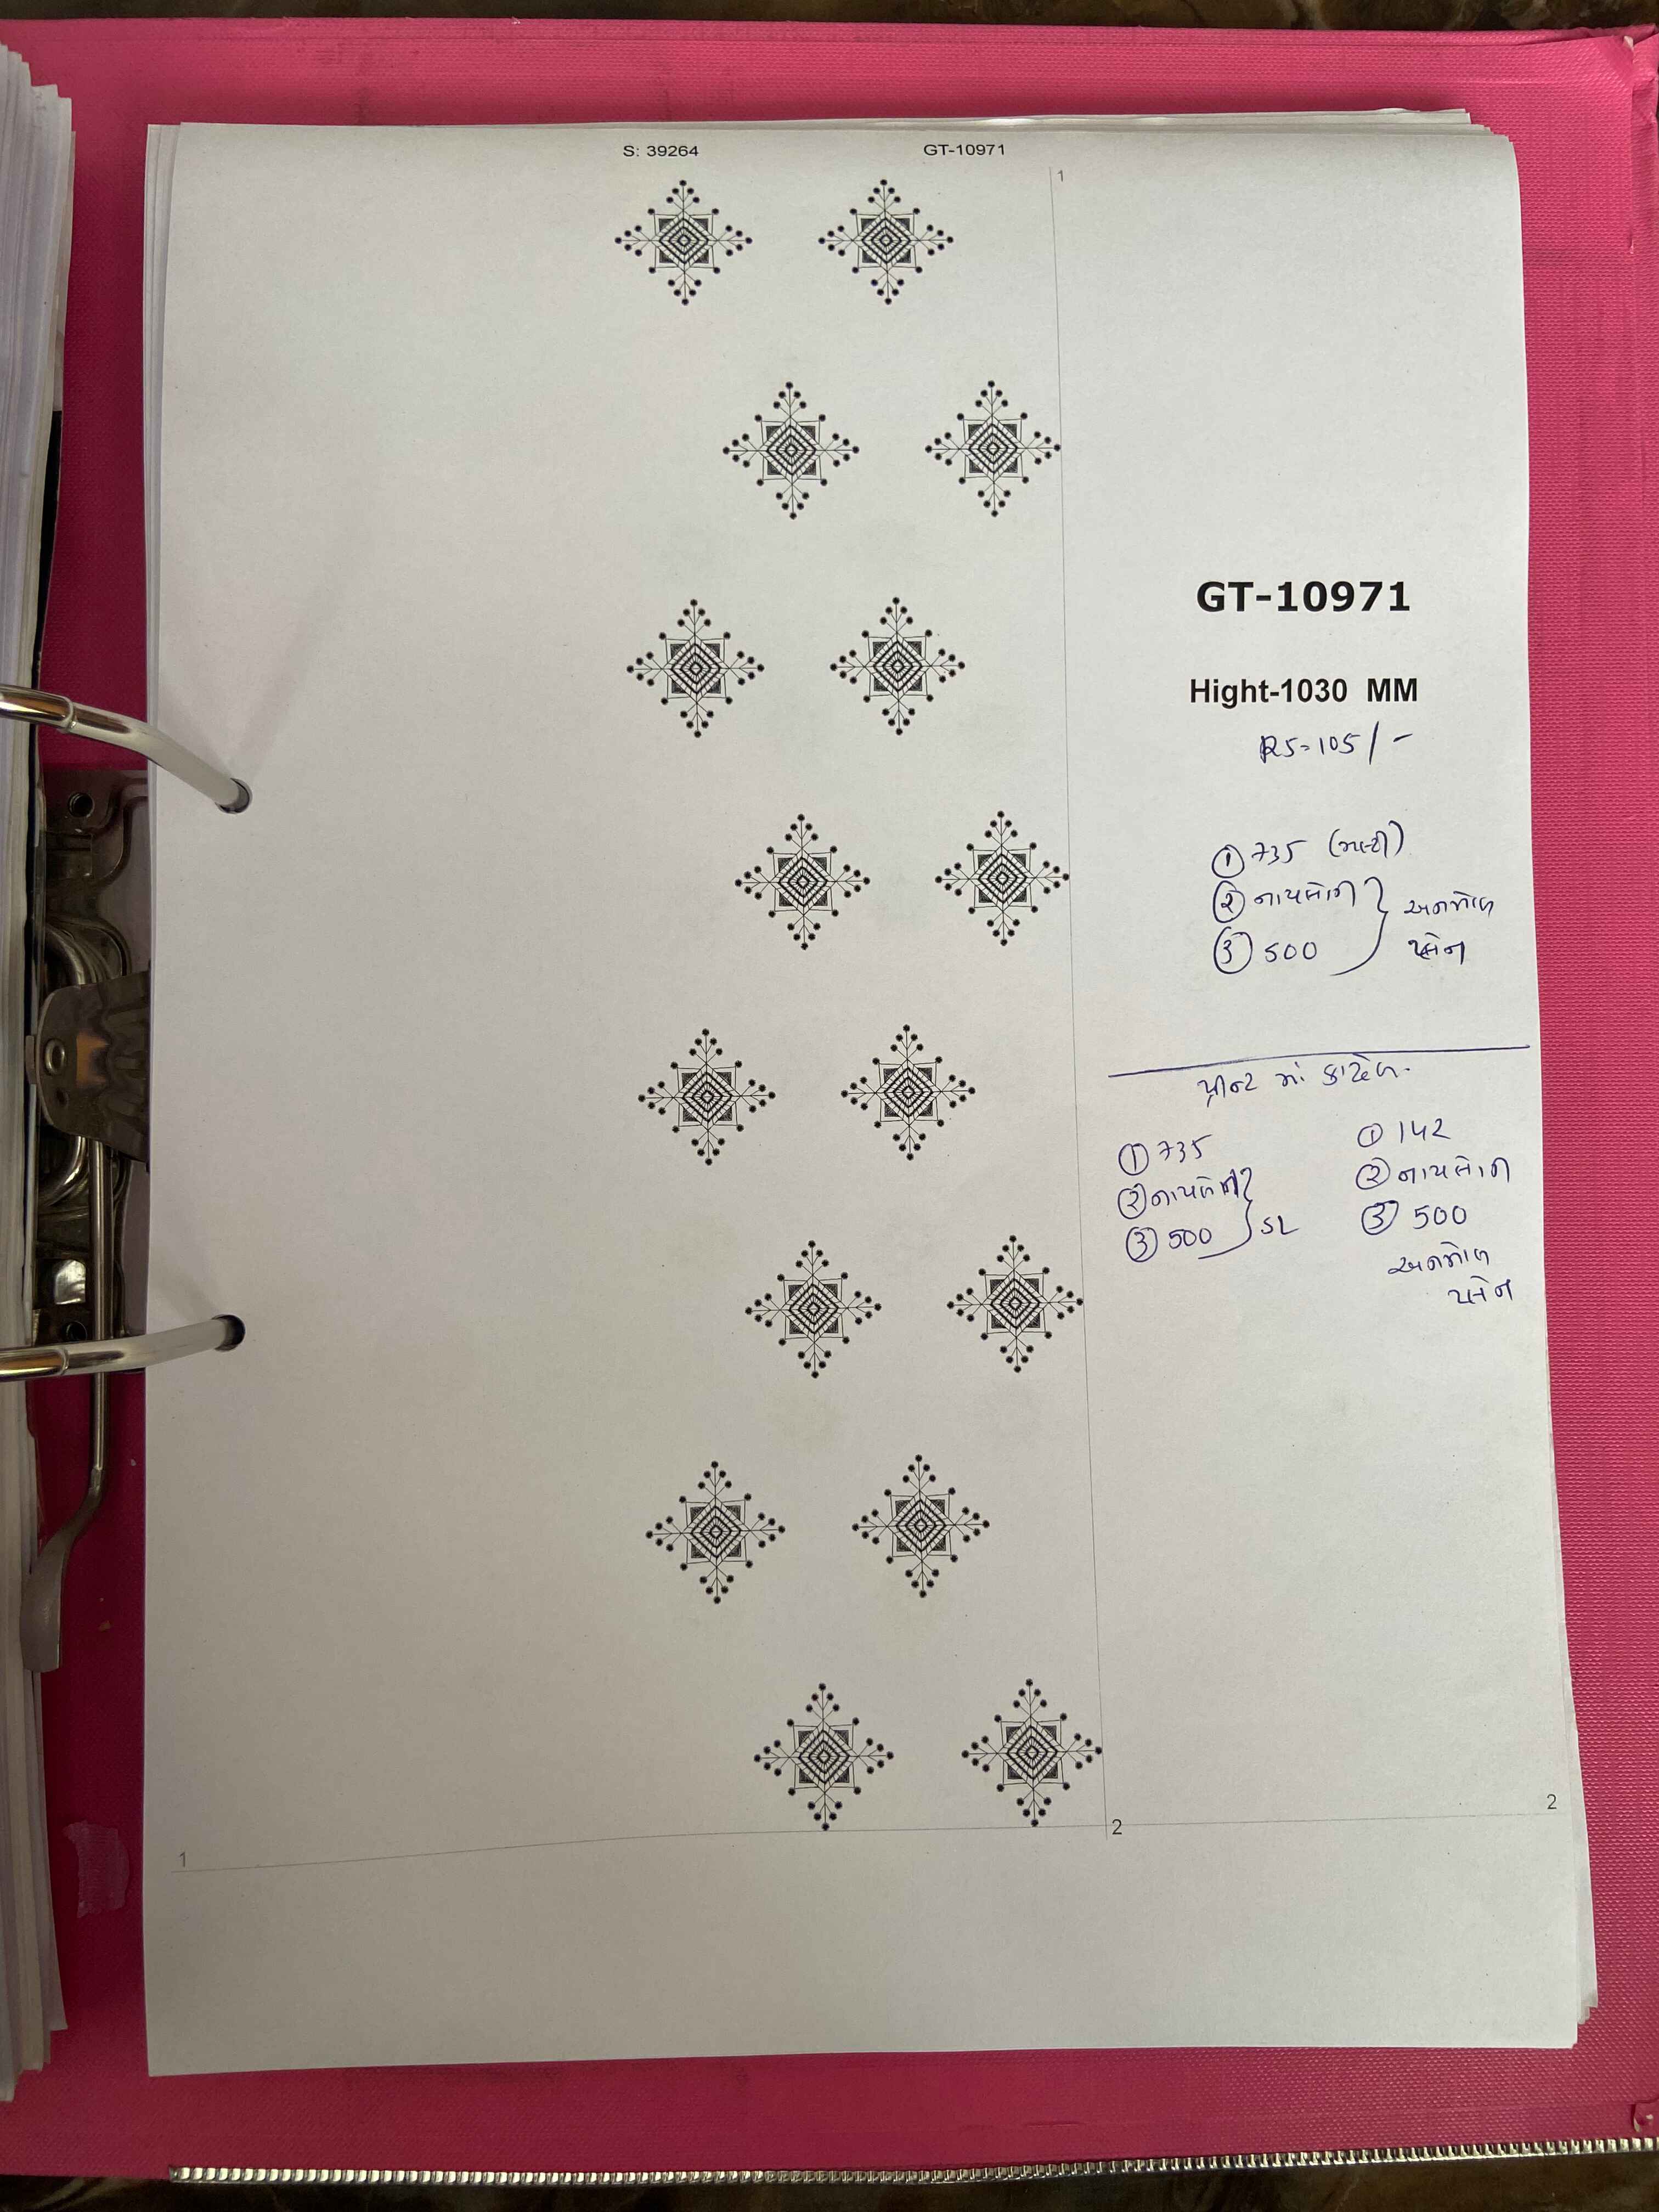 S: 39264 GT-10971
1
GT-10971
Hight-1030 MM
RS=105/-
① 735 (મલ્ટી)
② નાયલોન
③ 500
અનમોલ
પ્લેન
પ્રીન્ટ માં કાઢેલ.
① 735
② નાયલોન
③ 500 SL
① 142
② નાયલોન
③ 500
અનમોલ
પ્લેન
2
2
1